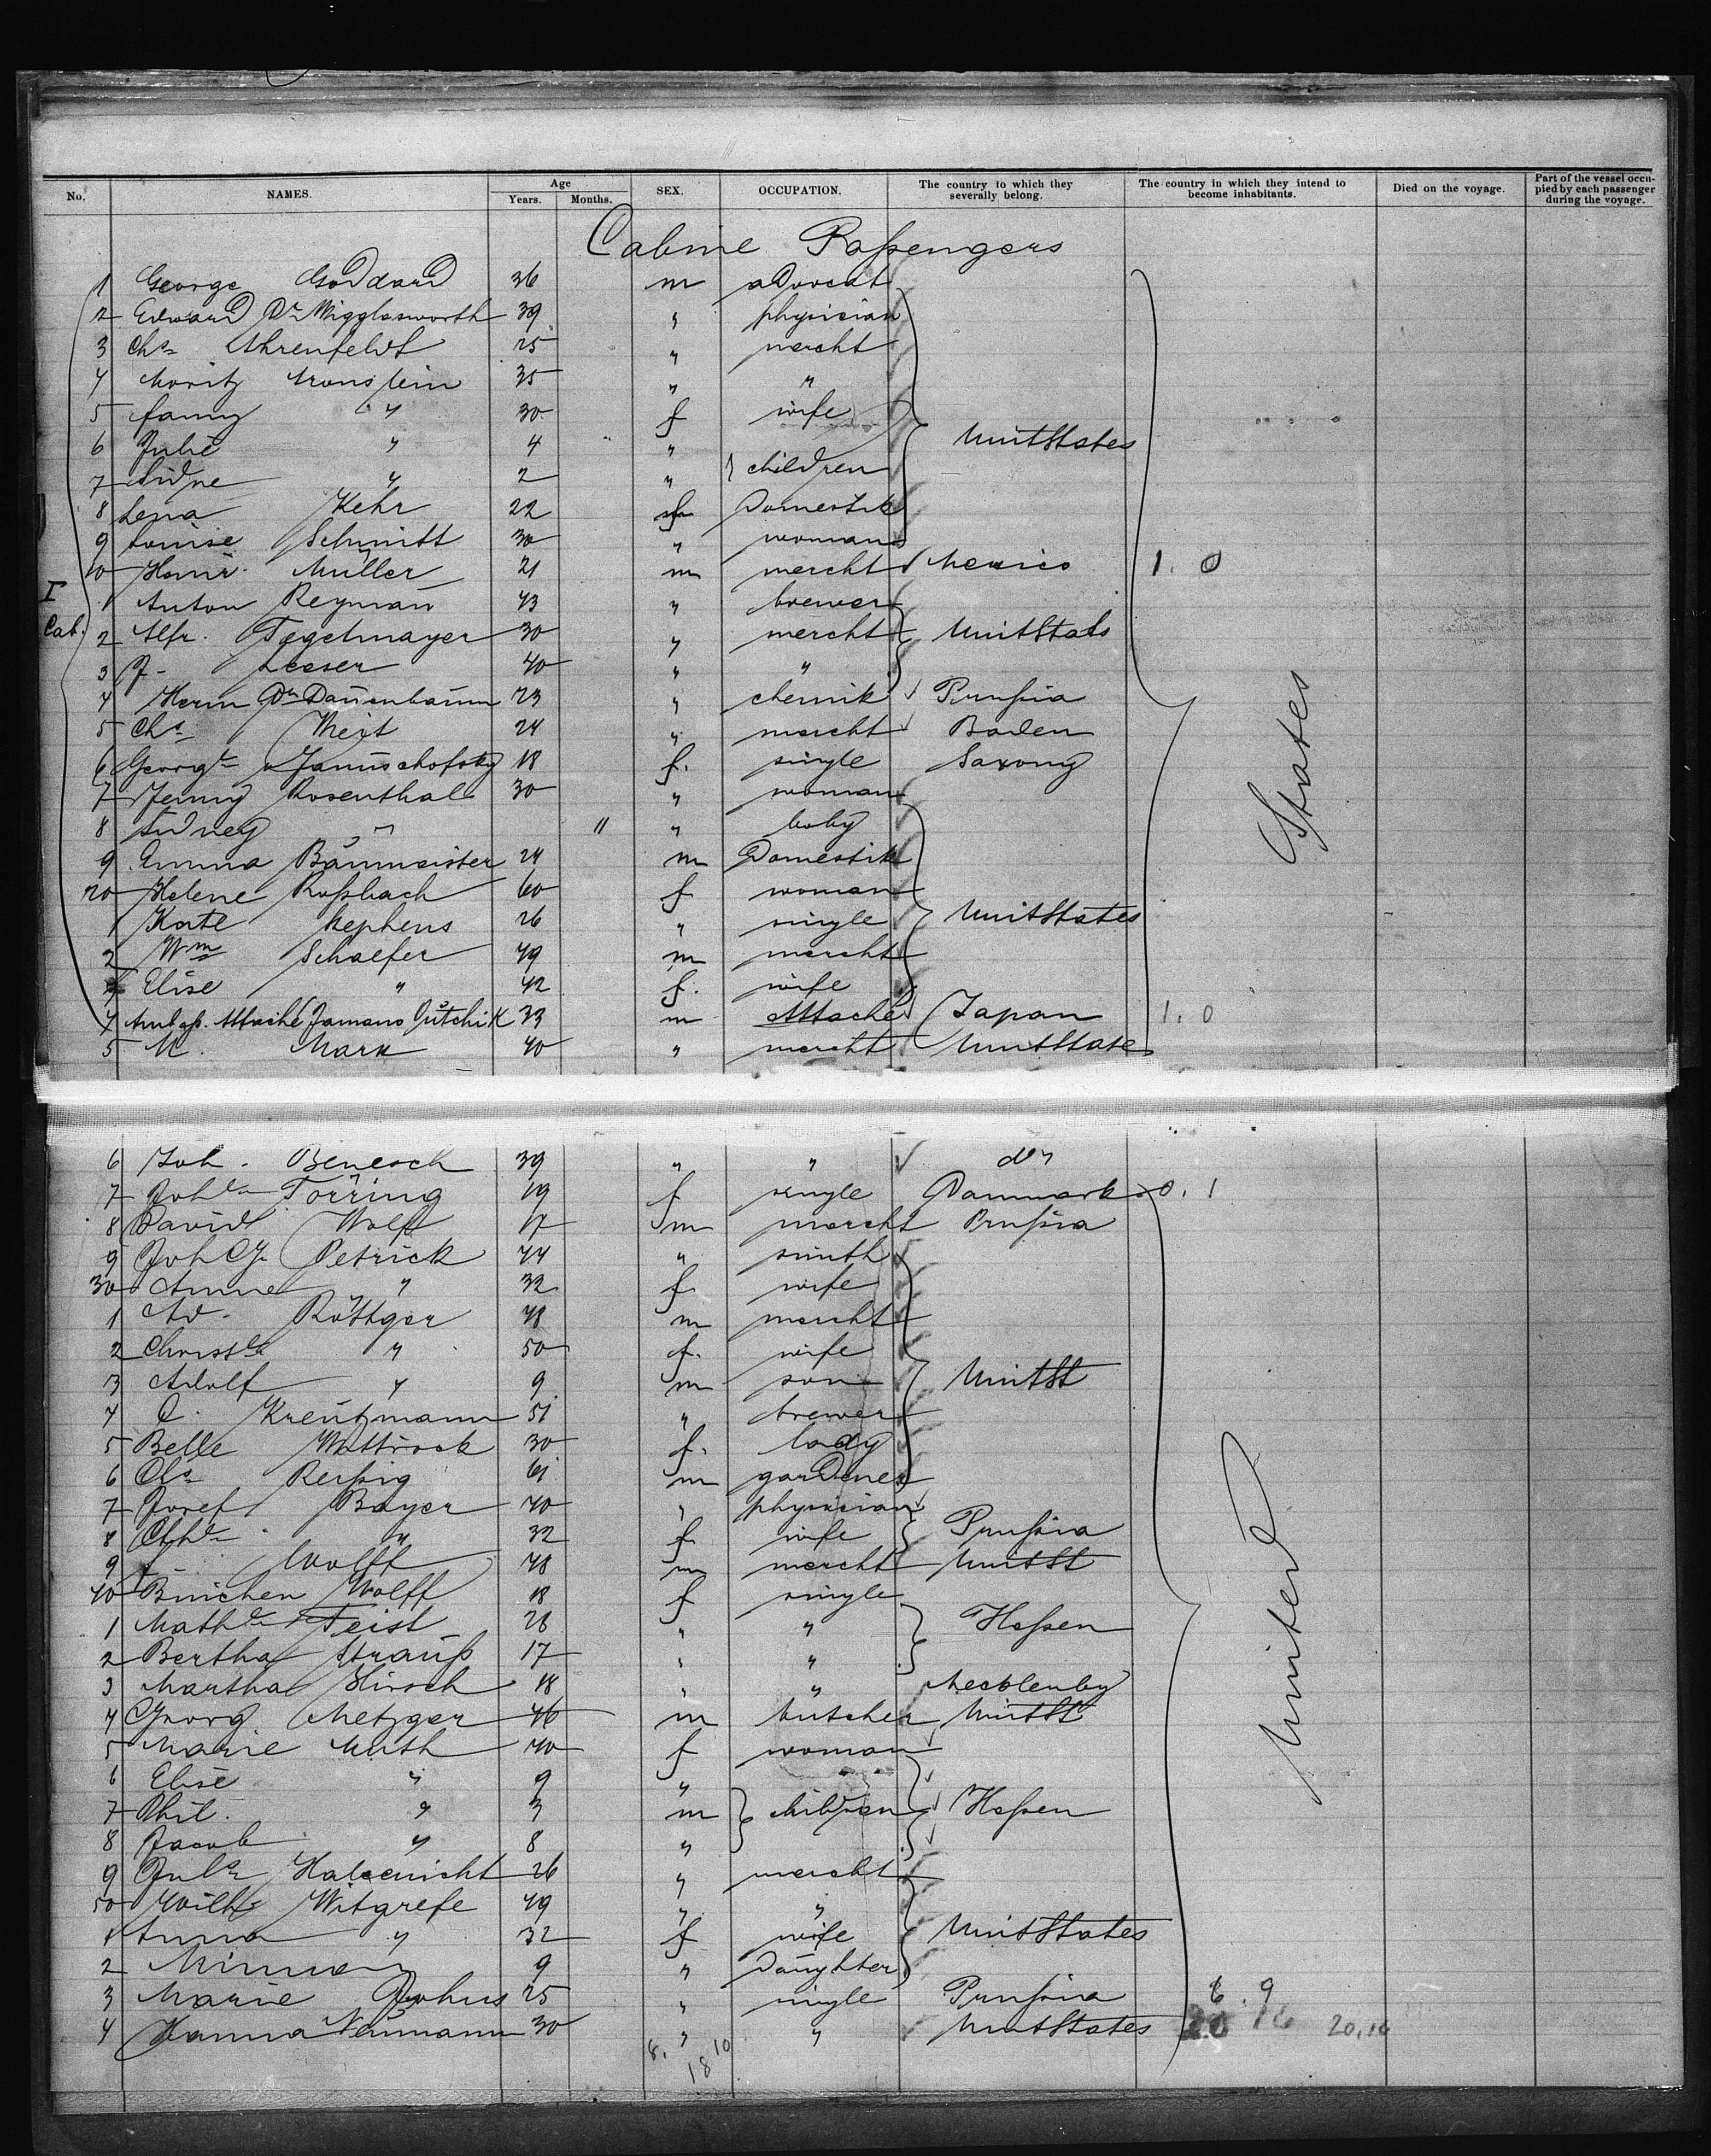 No. NAMES. Age Years. Months. SEX. OCCUPATION. The country to which they severally belong. The country in which they intend to become inhabitants. Died on the voyage. Part of the vessel occupied by each passenger during the voyage.
Cabine Paſsengers
1 George Goddard 36 m advocat
2 Edward Dr Wigglesworth 39 " physician
3 Chs Ahrenfeldt 25 " mercht
4 Moritz Aronstein 35 " "
5 Fanny " 30 f wife
6 Julie " 4 " UnitStates
7 Sidne " 2 " } children
8 Lena Kehr 22 f Domestik
9 Louise Schmitt 30 " woman
10 Heinr. Müller 21 m mercht Mexico 1. 0
I Cab.
1 Anton Reyman 43 " brewer
2 Alfr. Tegetmayer 30 " mercht UnitStats
3 J. Lesser 40 " "
4 Herm Dr Dannenbaum 23 " chemik Pruſsia
5 Chs Weit 24 " mercht Baden
6 Georgte v Januschofsky 18 f. single Saxony
7 Jenny Rosenthal 30 " woman
8 Sidney " 11 " baby
9 Emma Baumeister 24 m Domestik
20 Helene Roſsbach 60 f woman
1 Kate Stephens 26 " single UnitStates
2 Wm Schaefer 49 m mercht
3 Elise " 42 f. wife
4 Ambaſs. Attaché Jamano Gutchi K 33 m Attaché Japan 1. 0
5 M. Mark 40 " mercht UnitState
6 Joh. Benesch 39 " " do
7 Johe Törring 19 f single Danmark 0. 1
8 David Wolff 17 m mercht Pruſsia
9 Joh Cg. Petrick 44 " smith
30 Anne " 32 f. wife
1 Ad. Röttger 48 m mercht
2 Christe " 50 f. wife
3 Adolf " 9 m son UnitSt
4 C. Kreutzmann 51 " brewer
5 Belle Wittrock 30 f. lady
6 Chs Reiſsig 61 m gardener
7 Josef Bayer 40 " physician
8 Cthe " 32 f. wife Pruſsia
9 Wolff 48 m mercht UnitSt
40 Binchen Wolff 18 f single
1 Mathe Feist 28 " " Heſsen
2 Bertha Strauſs 17 " "
3 Martha Hirsch 18 " " Mecklenbg
4 Georg Metzger 46 m butcher UnitSt
5 Marie Muth 40 f woman
6 Elise " 9 "
7 Phil. " 3 m } children Heſsen
8 Jacob " 8 "
9 Juls Halsenicht 26 " mercht
50 Wilh. Witgrefe 49 " "
1 Anna " 32 f wife UnitStates
2 Minna " 9 " Daughter
3 Marie Johns 25 " single Pruſsia 6. 9
4 Hanna Neumann 30 " " UnitStates 20 16 20,16
8. 10
18
United States